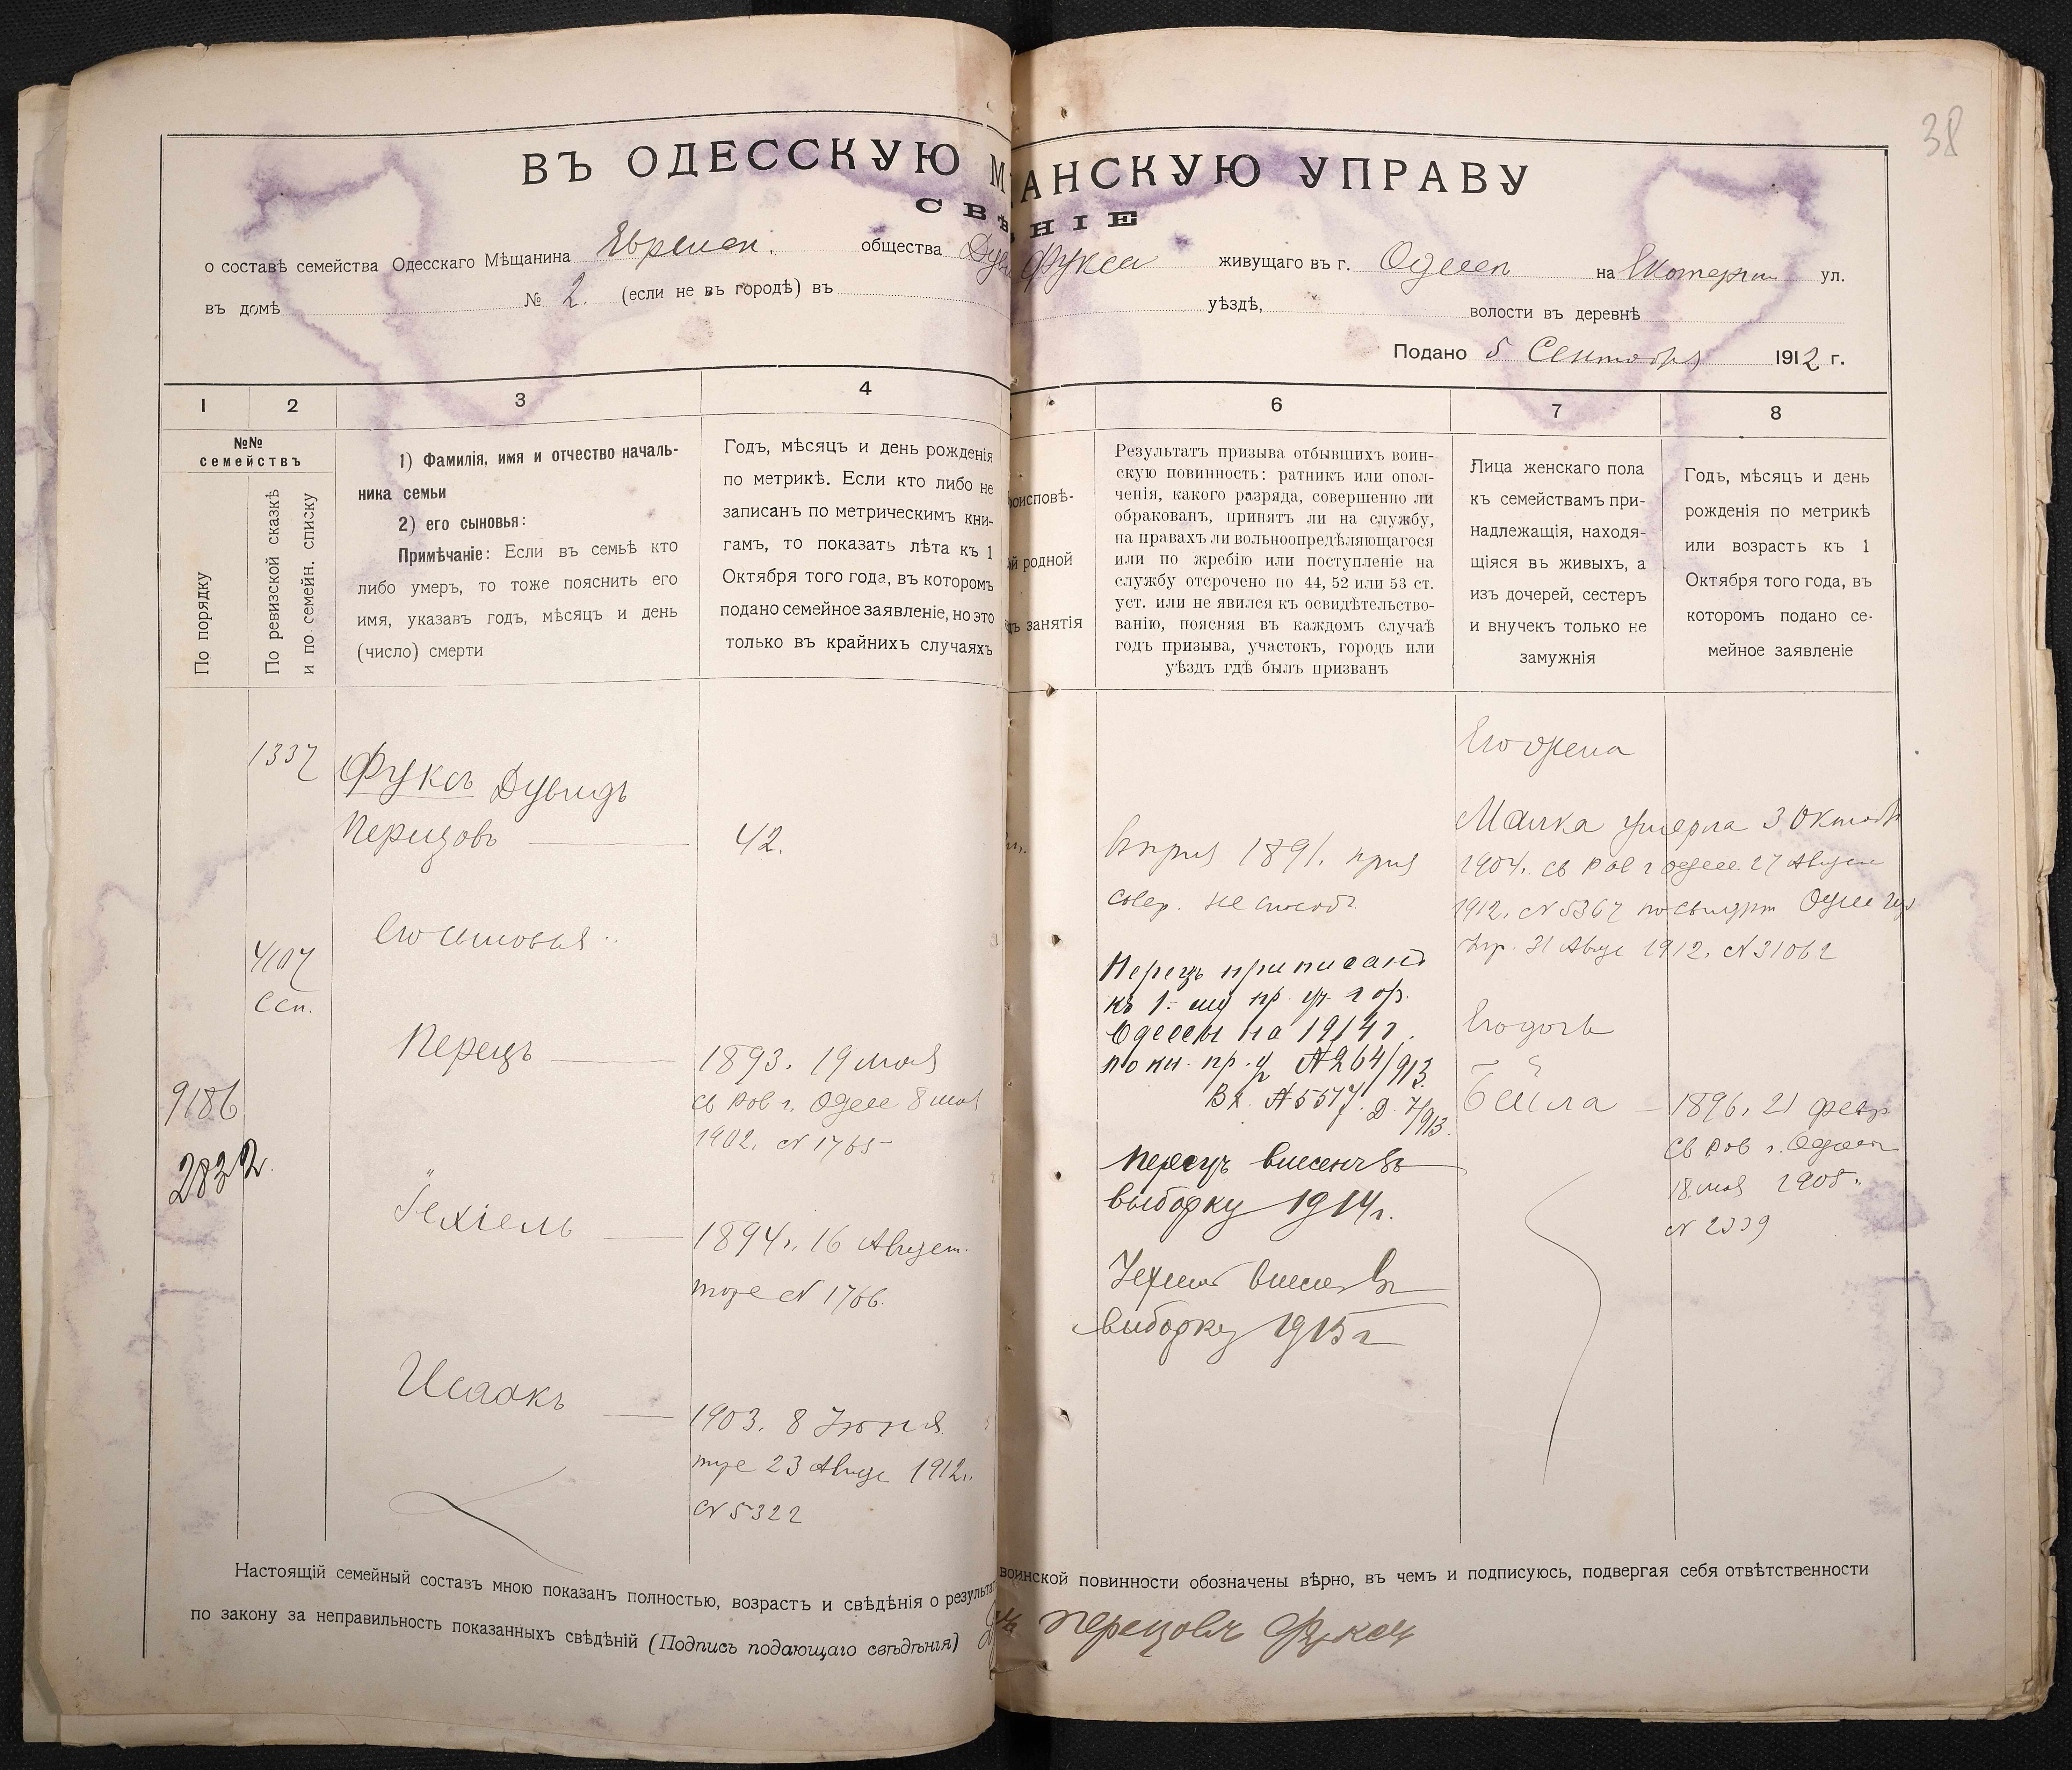 38
ВЪ ОДЕССКУЮ М АНСКУЮ УПРАВУ
СВѢ НІЕ
о составѣ семейства Одесскаго Мѣщанина Еврейск. общества Дув Фукса живущаго въ г. Одессѣ на Екатерин ул.
въ домѣ № 2. (если не въ городѣ) въ уѣздѣ, волости въ деревнѣ
Подано 5 Сентября 1912 г.
1 2 3 4 6 7 8
№№ семействъ
По порядку
По ревизской сказкѣ
и по семейн. списку
1) Фамилія, имя и отчество началь-
ника семьи
2) его сыновья:
Примѣчаніе: Если въ семьѣ кто
либо умеръ, то тоже пояснить его
имя, указавъ годъ, мѣсяцъ и день
(число) смерти
Годъ, мѣсяцъ и день рожденія
по метрикѣ. Если кто либо не
записанъ по метрическимъ кни-
гамъ, то показать лѣта къ 1
Октября того года, въ которомъ
подано семейное заявленіе, но это
только въ крайнихъ случаяхъ
роисповѣ-
й родной
ъ занятія
Результатъ призыва отбывшихъ воин-
скую повинность: ратникъ или опол-
ченія, какого разряда, совершенно ли
обракованъ, принятъ ли на службу,
на правахъ ли вольноопредѣляющагося
или по жребію или поступленіе на
службу отсрочено по 44, 52 или 53 ст.
уст. или не явился къ освидѣтельство-
ванію, поясняя въ каждомъ случаѣ
годъ призыва, участокъ, городъ или
уѣздъ гдѣ былъ призванъ
Лица женскаго пола
къ семействамъ при-
надлежащія, находя-
щіяся въ живыхъ, а
изъ дочерей, сестеръ
и внучекъ только не
замужнія
Годъ, мѣсяцъ и день
рожденія по метрикѣ
или возрастъ къ 1
Октября того года, въ
которомъ подано се-
мейное заявленіе
1337
Фуксъ Дувидъ
Перецовъ
42.
1891.
совер. не способ.
Его жена
Малка умерла 3 Октяб
1904. св Рав г Одесс. 27 Август
1912. № 5367 по свидѣт Одесс
31 Авгус 1912. № 31062
Его сыновья
4107
Ссп.
Перецъ
1893. 19 мая
св Рав г. Одесс 8 мая
1902. № 1765
9186
2832.
Перецъ приписанъ
къ 1-му пр. уч. гор.
Одессы на 1914 г.
по кн. пр. у № 264/913.
Вх. № 5517. Д. 7/913.
Перецъ внесенъ въ
выборку 1914 г.
Его дочь
Бейла
1896. 21 февр
Св Рав г. Одессы
18 мая 1905.
№ 2339
Іехіель
1894 г. 16 Август.
тоже № 1766.
Іехіель внесенъ въ
выборку 1915 г
Исаакъ
1903. 8 Іюня
тоже 23 Август 1912 г.
№ 5322
Настоящій семейный составъ мною показанъ полностью, возрастъ и свѣдѣнія о результат воинской повинности обозначены вѣрно, въ чемъ и подписуюсь, подвергая себя отвѣтственности
по закону за неправильность показанныхъ свѣдѣній (Подпись подающаго свѣдѣнія) Перецовъ Фуксъ